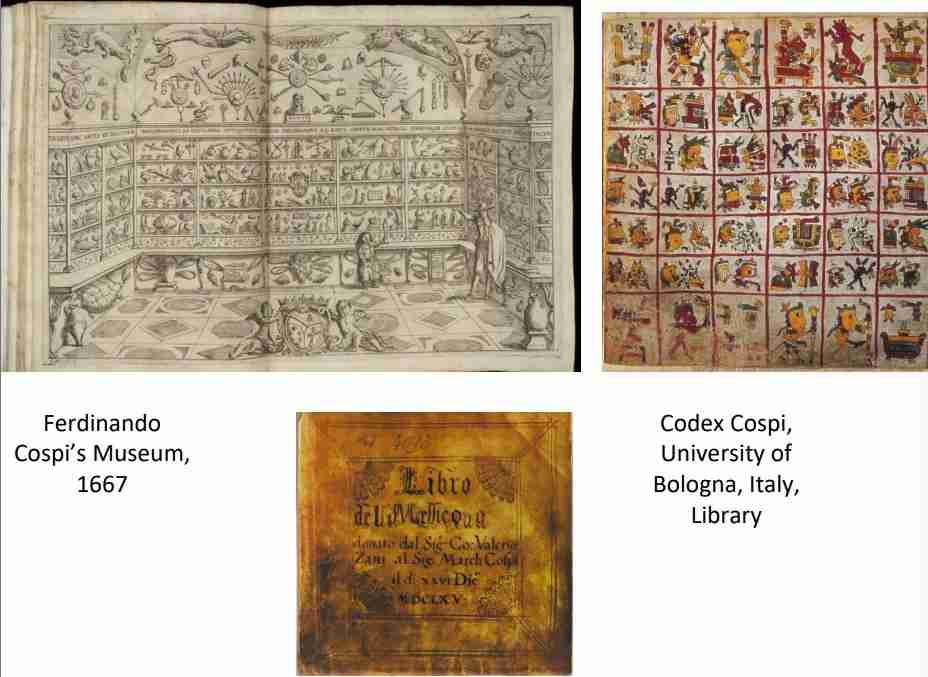 Ferdinando
Cospi's Museum,
1667
Libro
donato dal Sig. Co: Valerio
Zani al Sig. March. Cospi
il di XXVI Dic.
MDCLXV
Codex Cospi,
University of
Bologna, Italy,
Library